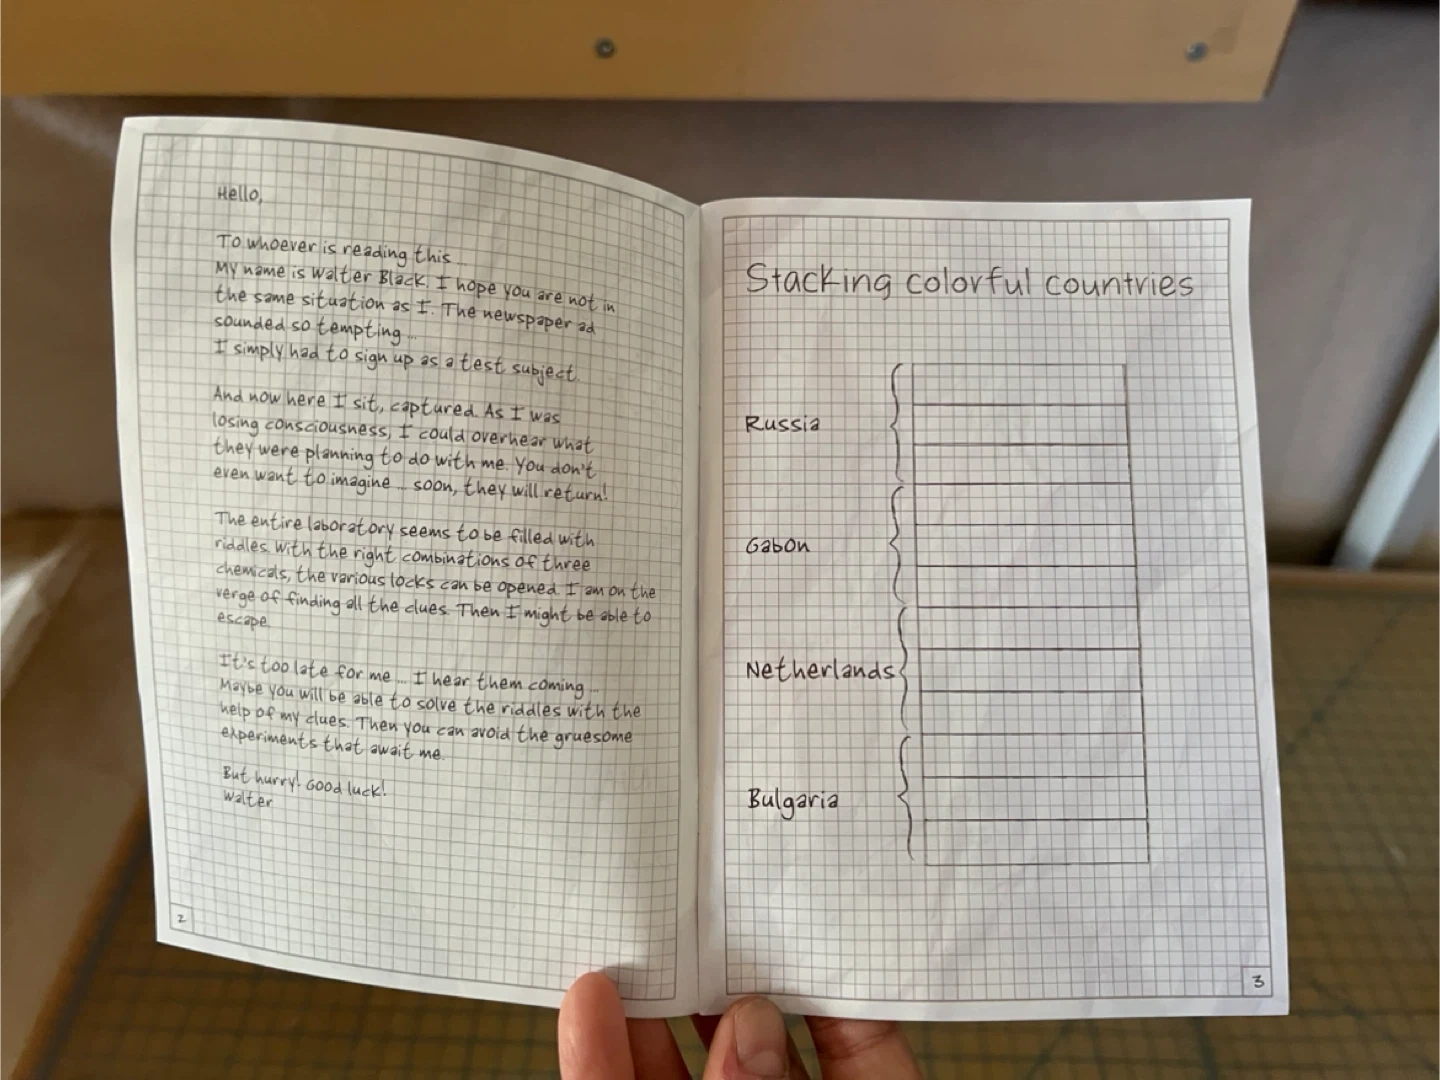 Hello,
To whoever is reading this...
My name is Walter Black. I hope you are not in
the same situation as I. The newspaper ad
sounded so tempting...
I simply had to sign up as a test subject.
And now here I sit, captured. As I was
losing consciousness, I could overhear what
they were planning to do with me. You don't
even want to imagine... soon, they will return!
The entire laboratory seems to be filled with
riddles. With the right combinations of three
chemicals, the various locks can be opened. I am on the
verge of finding all the clues. Then I might be able to
escape.
It's too late for me... I hear them coming...
Maybe you will be able to solve the riddles with the
help of my clues. Then you can avoid the gruesome
experiments that await me.
But hurry! Good luck!
Walter
2
Stacking colorful countries
Russia
Gabon
Netherlands
Bulgaria
3